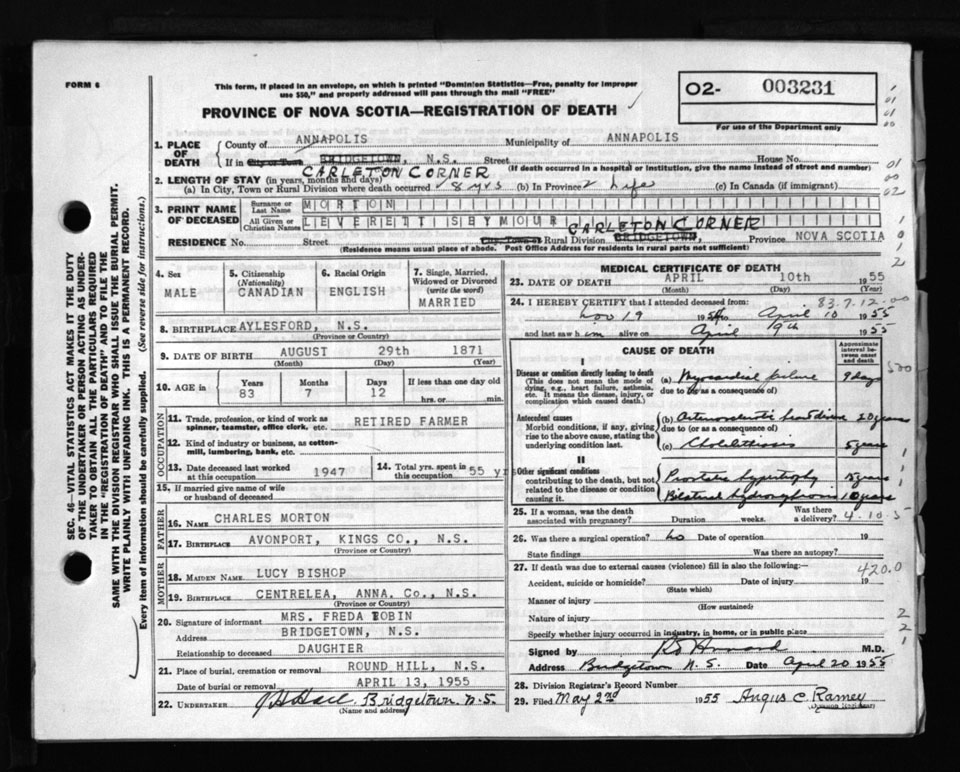 FORM 6
This form, if placed in an envelope, on which is printed "Dominion Statistics—Free, penalty for improper
use $50," and properly addressed will pass through the mail "FREE"
PROVINCE OF NOVA SCOTIA—REGISTRATION OF DEATH
02- 003231
For use of the Department only
1. PLACE OF DEATH
County of ANNAPOLIS Municipality of ANNAPOLIS
If in City or Town BRIDGETOWN, N.S. Street House No.
(If death occurred in a hospital or institution, give the name instead of street and number)
CARLETON CORNER
2. LENGTH OF STAY (in years, months and days)
(a) In City, Town or Rural Division where death occurred 8 yrs (b) In Province Life (c) In Canada (if immigrant)
3. PRINT NAME OF DECEASED
Surname or Last Name MORTON
All Given or Christian Names LEVERETT ISBYMOUR
CARLETON CORNER
RESIDENCE No. Street City, Town or Rural Division BRIDGETOWN, Province NOVA SCOTIA
(Residence means usual place of abode. Post Office Address for residents in rural parts not sufficient)
4. Sex
MALE
5. Citizenship (Nationality)
CANADIAN
6. Racial Origin
ENGLISH
7. Single, Married, Widowed or Divorced (write the word)
MARRIED
8. BIRTHPLACE AYLESFORD, N.S.
(Province or Country)
9. DATE OF BIRTH AUGUST 29th 1871
(Month) (Day) (Year)
10. AGE in Years Months Days If less than one day old
83 7 12 hrs. or min.
OCCUPATION
11. Trade, profession, or kind of work as spinner, teamster, office clerk, etc. RETIRED FARMER
12. Kind of industry or business, as cotton-mill, lumbering, bank, etc.
13. Date deceased last worked at this occupation 1947
14. Total yrs. spent in this occupation 55 yrs
15. If married give name of wife or husband of deceased
FATHER
16. NAME CHARLES MORTON
17. BIRTHPLACE AVONPORT, KINGS CO., N.S.
(Province or Country)
MOTHER
18. MAIDEN NAME LUCY BISHOP
19. BIRTHPLACE CENTRELEA, ANNA. Co., N.S.
(Province or Country)
20. Signature of informant MRS. FREDA TOBIN
Address BRIDGETOWN, N.S.
Relationship to deceased DAUGHTER
21. Place of burial, cremation or removal ROUND HILL, N.S.
Date of burial or removal APRIL 13, 1955
22. UNDERTAKER Bridgetown. N.S.
(Name and address)
MEDICAL CERTIFICATE OF DEATH
23. DATE OF DEATH APRIL 10th 1955
(Month) (Day) (Year)
83.7.12.00
24. I HEREBY CERTIFY that I attended deceased from:
Nov 19 1954 to April 10 1955
and last saw him alive on April 9th 1955
CAUSE OF DEATH
Approximate interval between onset and death
I
Disease or condition directly leading to death
(This does not mean the mode of dying, e.g., heart failure, asthenia, etc. It means the disease, injury, or complication which caused death.)
(a) Myocardial failure 9 days
due to (or as a consequence of)
Antecedent causes
Morbid conditions, if any, giving rise to the above cause, stating the underlying condition last.
(b) Arteriosclerotic heart disease 20 years
due to (or as a consequence of)
(c) Cholelithiasis 5 years
II
Other significant conditions
contributing to the death, but not related to the disease or condition causing it.
Prostatic hypertrophy 15 years
Bilateral hydronephrosis 10 years
25. If a woman, was the death associated with pregnancy? Duration weeks. Was there a delivery?
4-10-5
26. Was there a surgical operation? no Date of operation 19
State findings Was there an autopsy?
27. If death was due to external causes (violence) fill in also the following:—
420.0
Accident, suicide or homicide? Date of injury 19
(State which)
Manner of injury
(How sustained)
Nature of injury
Specify whether injury occurred in industry, in home, or in public place
Signed by M.D.
Address Bridgetown N.S. Date April 20 1955
28. Division Registrar's Record Number
29. Filed May 2nd 1955 Angus C. Ramey
Division Registrar
SEC. 46—VITAL STATISTICS ACT MAKES IT THE DUTY
OF THE UNDERTAKER OR PERSON ACTING AS UNDER-
TAKER TO OBTAIN ALL THE PARTICULARS REQUIRED
IN THE "REGISTRATION OF DEATH" AND TO FILE THE
SAME WITH THE DIVISION REGISTRAR WHO SHALL ISSUE THE BURIAL PERMIT.
WRITE PLAINLY WITH UNFADING INK. THIS IS A PERMANENT RECORD.
Every item of information should be carefully supplied. (See reverse side for instructions.)